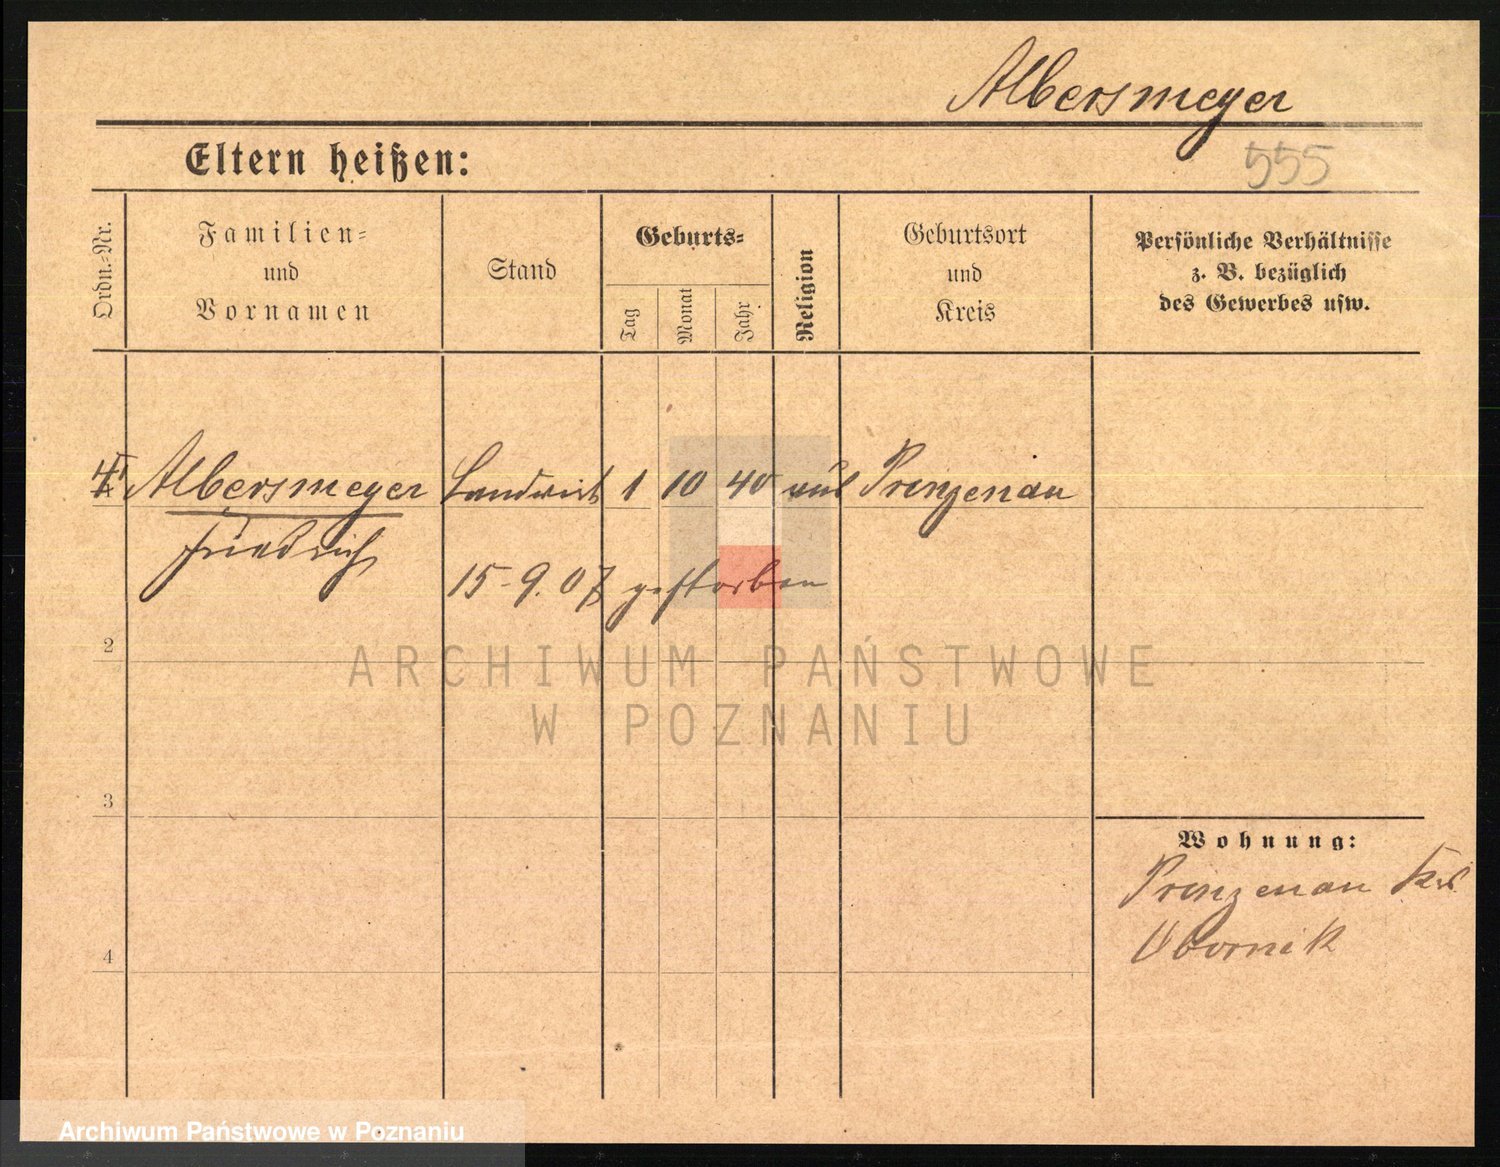 Albersmeyer
555
Eltern heißen:
Ordn.-Nr.
Familien-
und
Vornamen
Stand
Geburts-
Tag
Monat
Jahr
Religion
Geburtsort
und
Kreis
Persönliche Verhältnisse
z. B. bezüglich
des Gewerbes usw.
Albersmeyer Landwirt 1 10 40 Prinzenau
Friedrich
15-9.07 gestorben
2
ARCHIWUM PAŃSTWOWE
W POZNANIU
3
Wohnung:
Prinzenau
Obornik
4
Archiwum Państwowe w Poznaniu